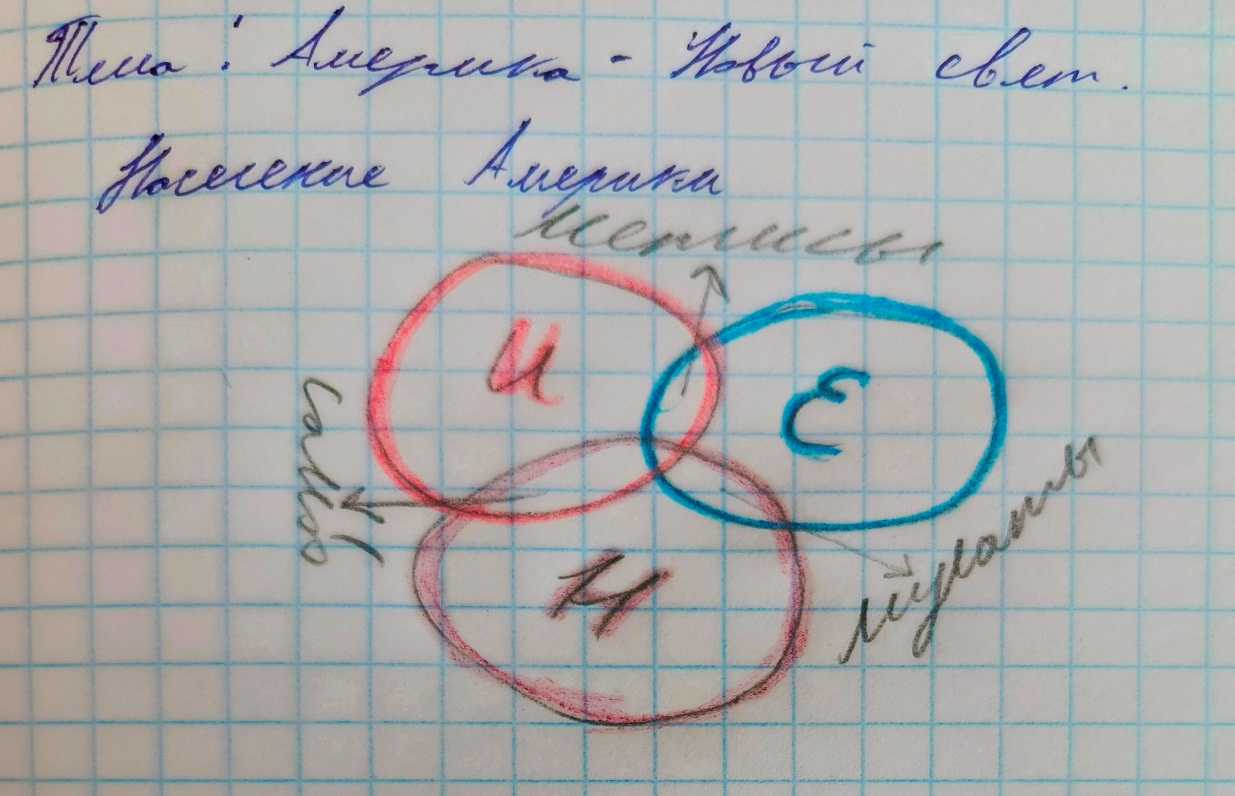 Тема: Америка - Новый свет.
Население Америки
метисы
И
Е
самбо
Н
мулаты